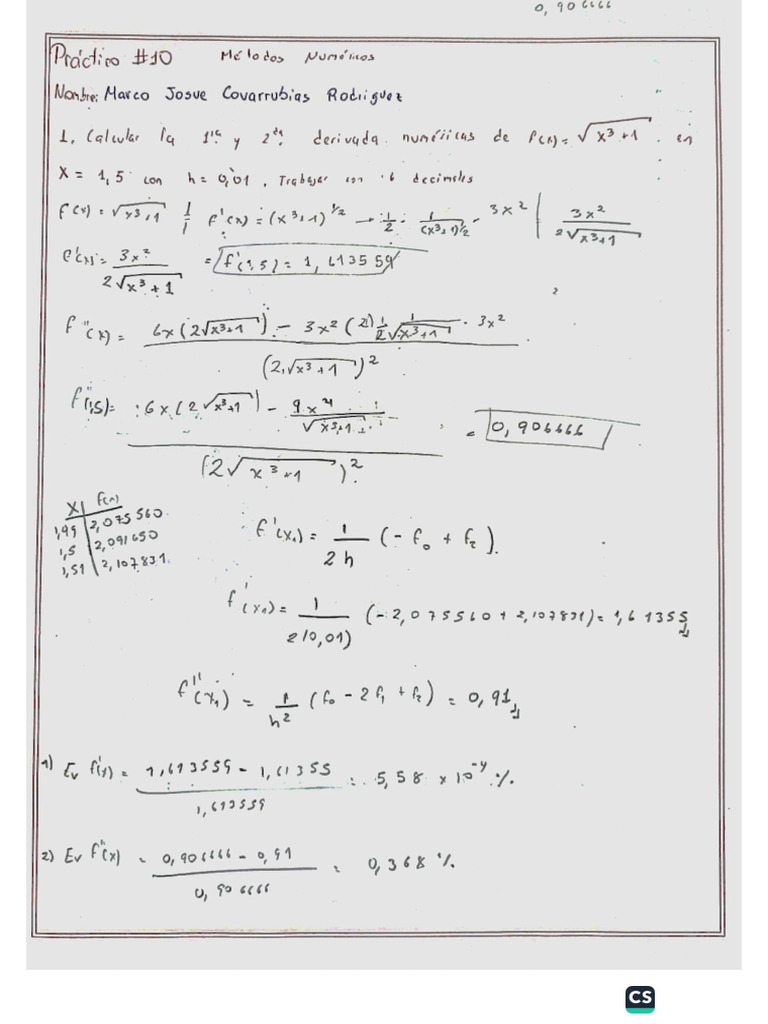 0,906666
Práctico #10 Métodos Numéricos
Nombre: Marco Josue Covarrubias Rodriguez
1. Calcular la 1ra y 2da derivada numéricas de f(x) = √(x³+1) en
x = 1,5 con h = 0,01. Trabajar con 6 decimales
f(x) = √(x³+1) f'(x) = (x³+1)^1/2 → 1/2 · 1/(x³+1)^1/2 · 3x² | 3x²/(2√(x³+1))
f'(x) = 3x²/(2√(x³+1)) = f'(1,5) = 1,613559
f''(x) = (6x(2√(x³+1)) - 3x²(2) 1/2 1/√(x³+1) · 3x²)/(2√(x³+1))²
f''(1,5) = (6x(2√(x³+1)) - 9x⁴/√(x³+1))/(2√(x³+1))² = 0,906666
x | f(x)
1,49 | 2,075560
1,5 | 2,091650
1,51 | 2,107831
f'(x₁) = 1/2h (-f₀ + f₂).
f'(x₁) = 1/2(0,01) (-2,075560 + 2,107831) = 1,61355
f''(x₁) = 1/h² (f₀ - 2f₁ + f₂) = 0,91
1) Ev f'(x) = (1,613559 - 1,61355)/1,613559 = 5,58 × 10⁻⁴ %.
2) Ev f''(x) = (0,906666 - 0,91)/0,906666 = 0,368 %.
CS